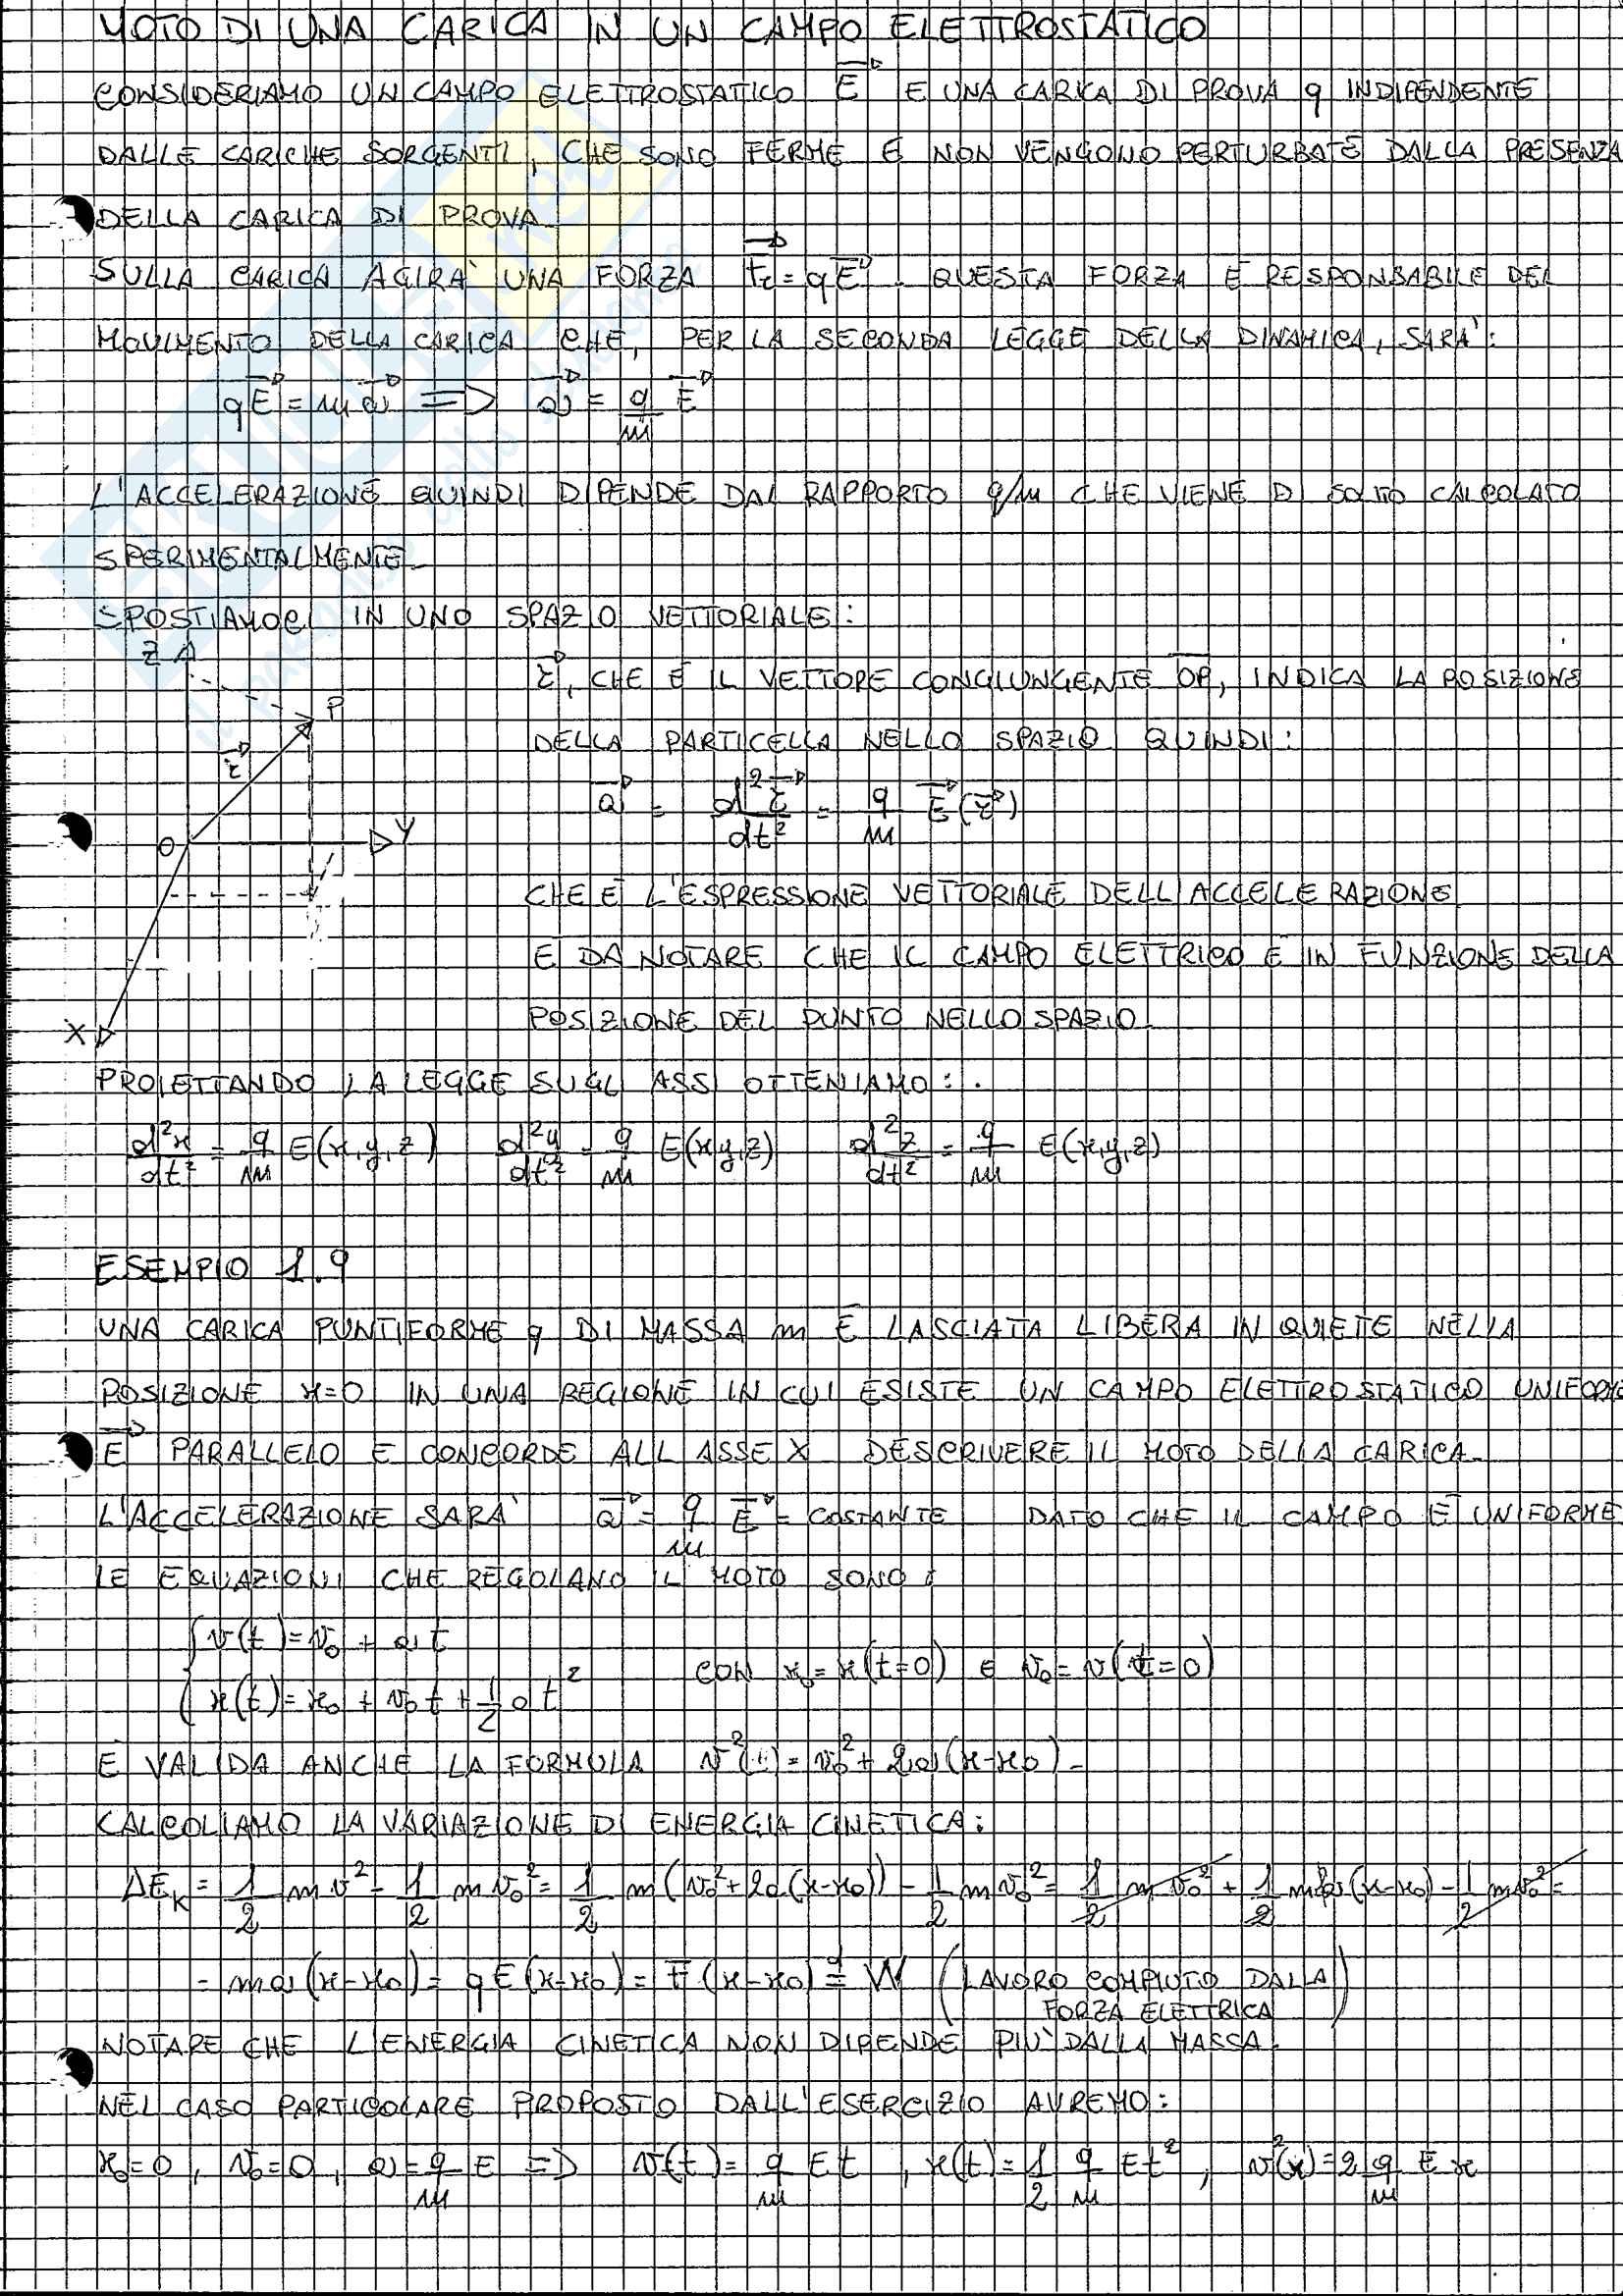 MOTO DI UNA CARICA IN UN CAMPO ELETTROSTATICO
CONSIDERIAMO UN CAMPO ELETTROSTATICO E⃗ E UNA CARICA DI PROVA q INDIPENDENTE
DALLE CARICHE SORGENTI, CHE SONO FERME E NON VENGONO PERTURBATE DALLA PRESENZA
DELLA CARICA DI PROVA.
SULLA CARICA AGIRA' UNA FORZA F⃗e = qE⃗. QUESTA FORZA È RESPONSABILE DEL
MOVIMENTO DELLA CARICA CHE, PER LA SECONDA LEGGE DELLA DINAMICA, SARA':
qE⃗ = ma⃗ => a⃗ = q/m E⃗
L'ACCELERAZIONE QUINDI DIPENDE DAL RAPPORTO q/m CHE VIENE DI SOLITO CALCOLATO
SPERIMENTALMENTE.
SPOSTIAMOCI IN UNO SPAZIO VETTORIALE:
Z
P
r⃗
O
Y
X
r⃗, CHE È IL VETTORE CONGIUNGENTE OP, INDICA LA POSIZIONE
DELLA PARTICELLA NELLO SPAZIO QUINDI:
a⃗ = d²r⃗/dt² = q/m E⃗(r⃗)
CHE È L'ESPRESSIONE VETTORIALE DELL'ACCELERAZIONE
È DA NOTARE CHE IL CAMPO ELETTRICO È IN FUNZIONE DELLA
POSIZIONE DEL PUNTO NELLO SPAZIO.
PROIETTANDO LA LEGGE SUGLI ASSI OTTENIAMO:
d²x/dt² = q/m E(x,y,z) d²y/dt² = q/m E(x,y,z) d²z/dt² = q/m E(x,y,z)
ESEMPIO 1.9
UNA CARICA PUNTIFORME q DI MASSA m È LASCIATA LIBERA IN QUIETE NELLA
POSIZIONE x=0 IN UNA REGIONE IN CUI ESISTE UN CAMPO ELETTROSTATICO UNIFORME
E⃗ PARALLELO E CONCORDE ALL'ASSE X DESCRIVERE IL MOTO DELLA CARICA.
L'ACCELERAZIONE SARA' a⃗ = q/m E⃗ = COSTANTE DATO CHE IL CAMPO È UNIFORME
LE EQUAZIONI CHE REGOLANO IL MOTO SONO:
v(t) = v₀ + at
x(t) = x₀ + v₀t + 1/2 at²
CON x₀ = x(t=0) E v₀ = v(t=0)
È VALIDA ANCHE LA FORMULA v²(t) = v₀² + 2a(x-x₀).
CALCOLIAMO LA VARIAZIONE DI ENERGIA CINETICA:
ΔEK = 1/2 mv² - 1/2 mv₀² = 1/2 m(v₀² + 2a(x-x₀)) - 1/2 mv₀² = 1/2 mv₀² + 1/2 m2a(x-x₀) - 1/2 mv₀² =
= ma(x-x₀) = qE(x-x₀) = F(x-x₀) = W (LAVORO COMPIUTO DALLA
FORZA ELETTRICA)
NOTARE CHE L'ENERGIA CINETICA NON DIPENDE PIU' DALLA MASSA.
NEL CASO PARTICOLARE PROPOSTO DALL'ESERCIZIO AVREMO:
x₀=0, v₀=0, a = q/m E => v(t) = q/m Et, x(t) = 1/2 q/m Et², v²(x) = 2 q/m Ex